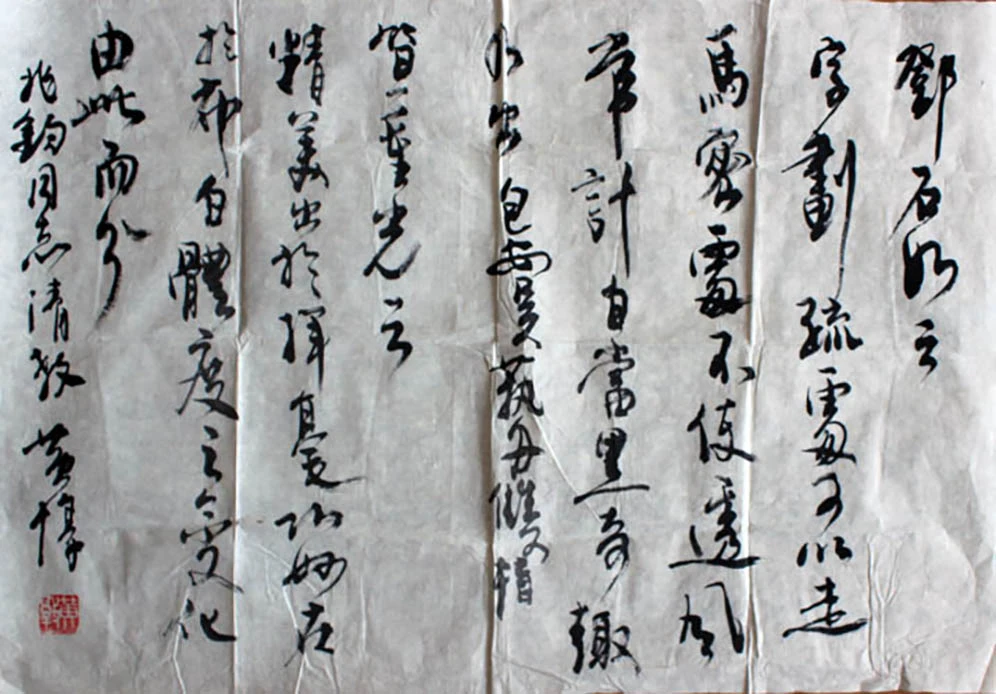 鄧石如云
字劃疏處可以走
馬密處不使透風
常計白當黑奇趣
乃出包安吳藝舟雙楫
笪重光云
精美出於揮毫巧妙在
於布白體度之變化
由此而分
鈞同志清教 黄惇